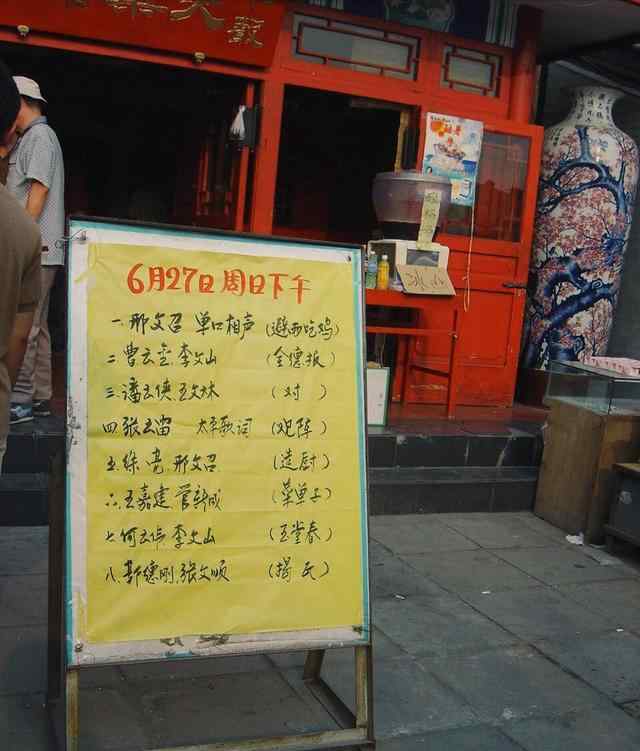 6月27日 周日下午
一.邢文召 单口相声 (吃鸡)
二.曹云金.李文山 (全德报)
三.潘云侠.王文林 (对 )
四张云雷 太平歌词
五.徐亮.邢文召 (造厨)
六.王嘉建.管新成 (菜单子)
七何云伟.李文山 (玉堂春)
八郭德刚.张文顺 (揭瓦)